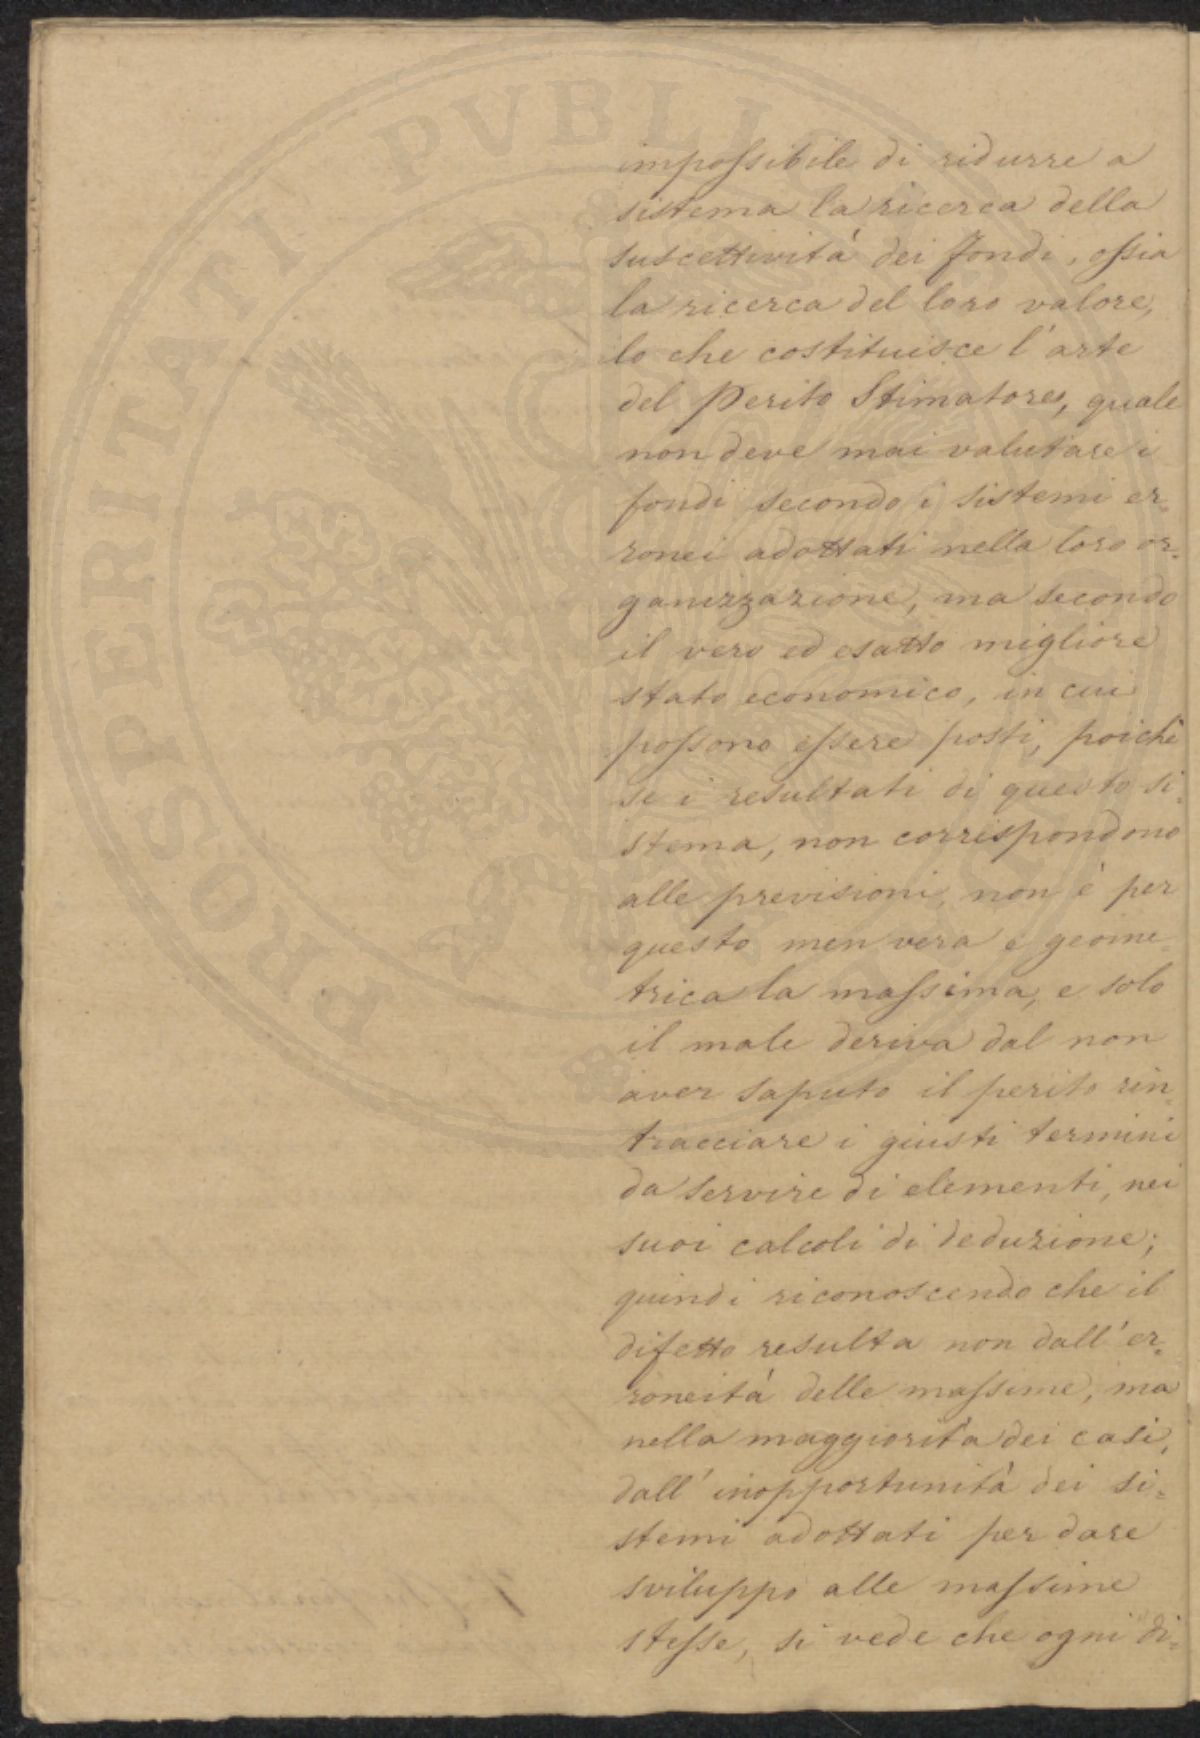 impossibile di ridurre a
sistema la ricerca della
suscettività dei fondi, ossia
la ricerca del loro valore,
lo che costituisce l'arte
del Perito Stimatore, quale
non deve mai valutare i
fondi secondo i sistemi er=
ronei adottati nella loro or=
ganizzazione, ma secondo
il vero ed esatto migliore
stato economico, in cui
possono essere posti, poichè
se i resultati di questo si=
stema, non corrispondono
alle previsioni, non è per
questo men vera e geome=
trica la massima, e solo
il male deriva dal non
aver saputo il perito rin=
tracciare i giusti termini
da servire di elementi, nei
suoi calcoli di deduzione;
quindi riconoscendo che il
difetto resulta non dall'er=
roneità delle massime, ma
nella maggiorità dei casi,
dall'inopportunità dei si=
stemi adottati per dare
sviluppo alle massime
stesse, si vede che ogni di=
PROSPERITATI PVBLIC